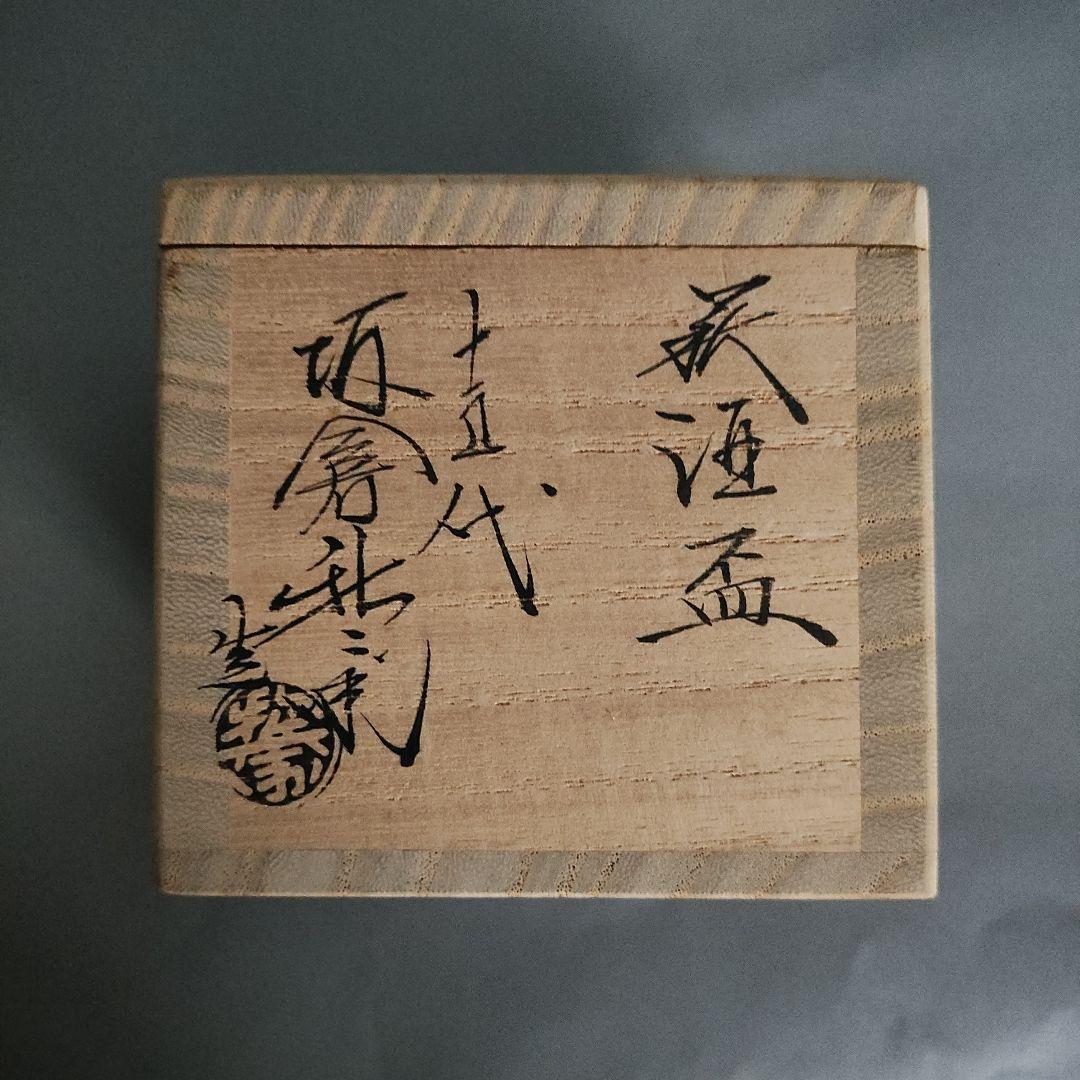 萩酒盃
十五代
坂倉新兵衛
造